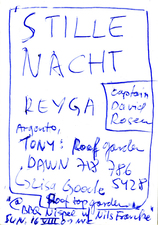 STILLE
NACHT
REYGA
captain
David
Rosen
Argonto,
TONY: Roof garden
DAWN 718 786
5428
Lisa Goode
Roof top garden
@ BBQ with Nils Francke
SUN. 16 VIII